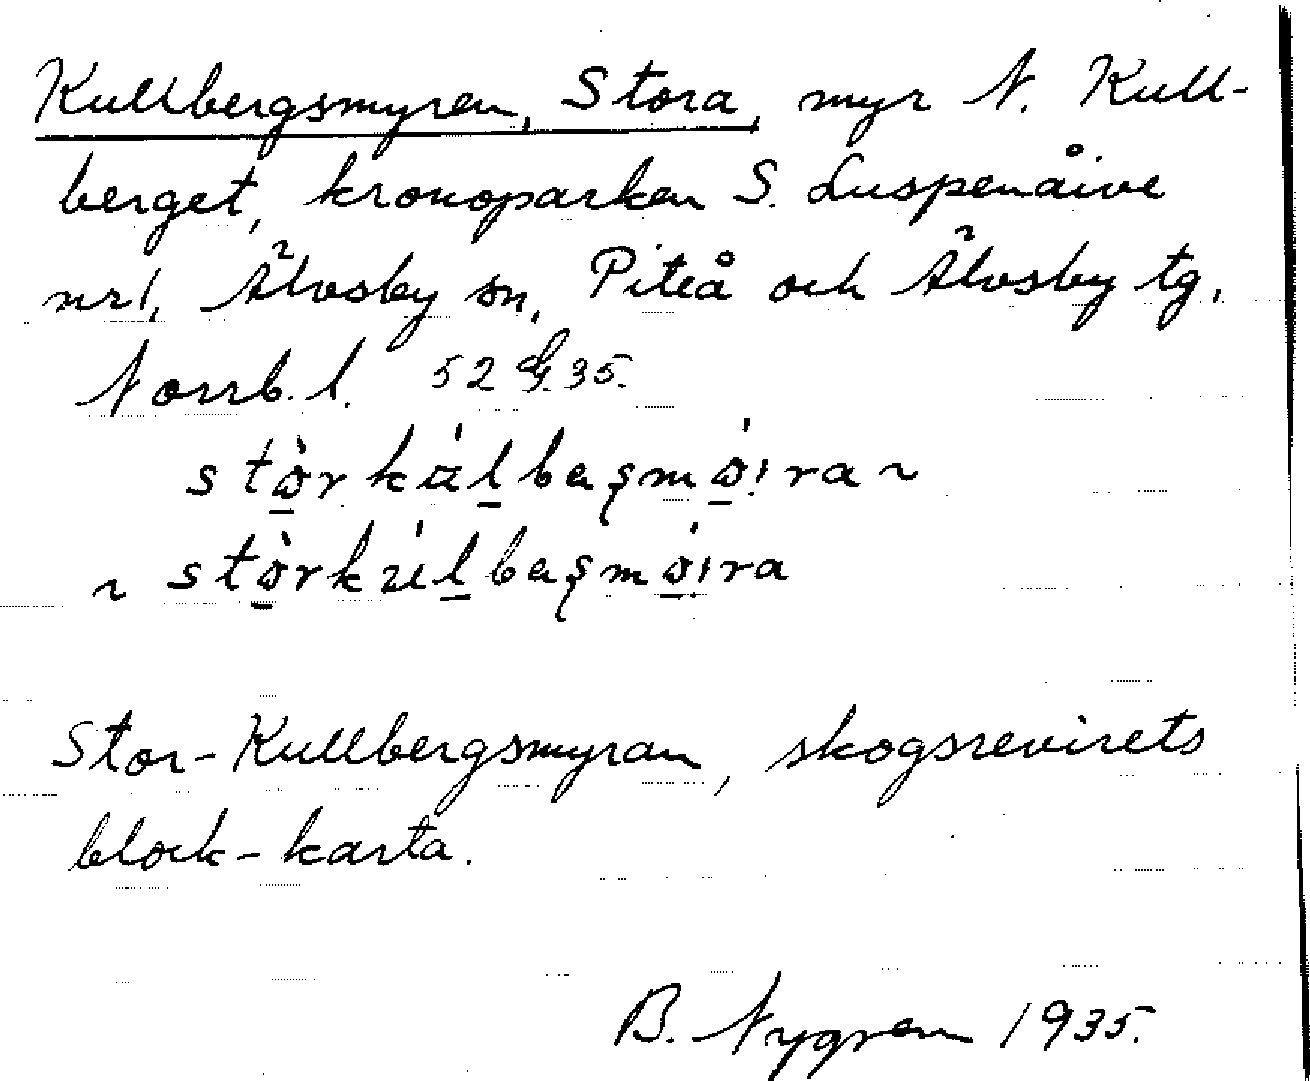 Kullbergsmyren, Stora, myr N. Kull-
berget, kronoparken S. Luspenåive
nr1, Älvsby sn, Piteå och Älvsby tg,
Norrb. l. 52 G. 35.
Stor-Kullbergsmyran, skogsrevirets
block-karta.
B. Nygren 1935.